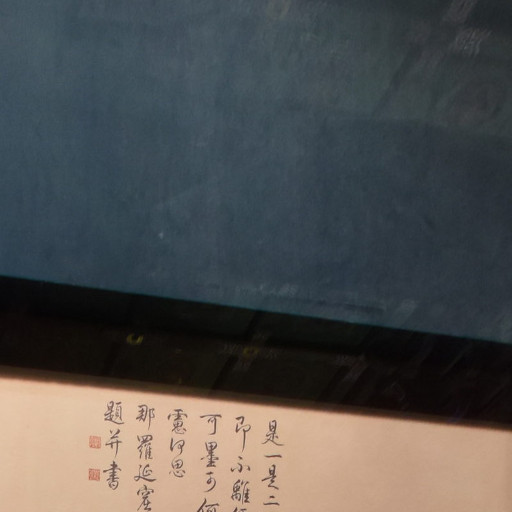 是一是二
即不離
可墨可
靈何思
那羅延窟
題并書